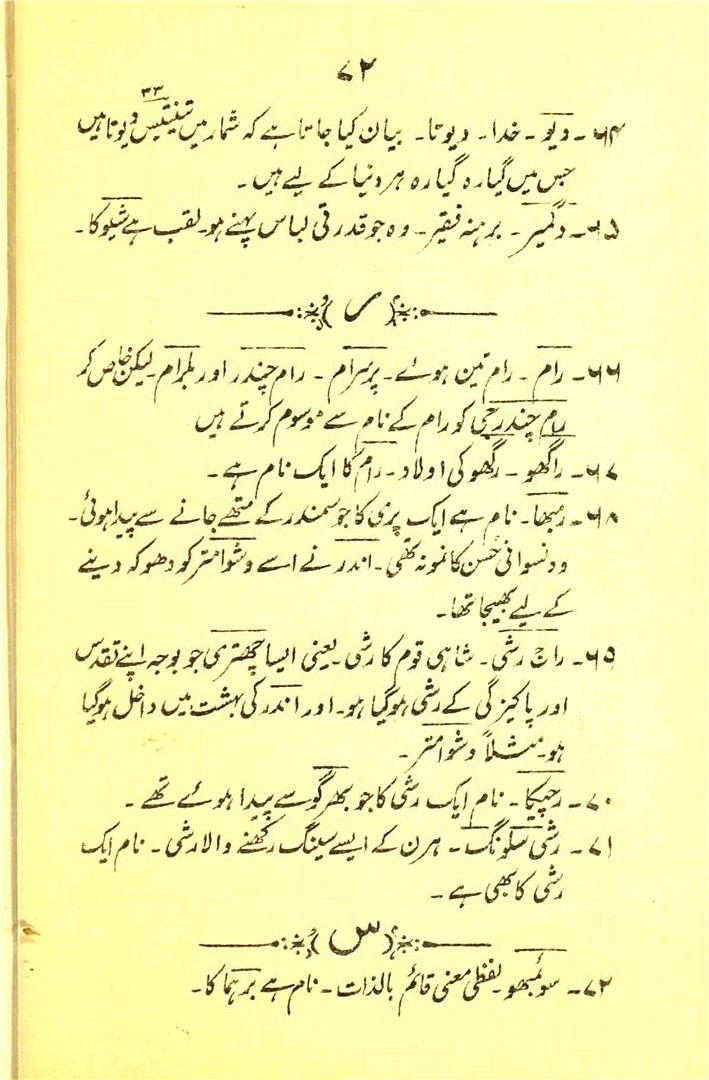 ۷۲
۳۳
۶۴۔ دیو۔ خدا۔ دیوتا۔ بیان کیا جاتا ہے کہ شمار میں تینتیس دیوتا ہیں
جس میں گیارہ گیارہ ہر دنیا کے لیے ہیں۔
۶۵۔ دگمبر۔ برہنہ فقیر۔ وہ جو قدرتی لباس پہنے ہو۔ لقب ہے شیو کا۔
(ر)
۶۶۔ رام۔ رام تین ہوئے۔ پرسرام۔ رام چندر اور بلرام۔ لیکن خاص کر
رام چندر جی کو رام کے نام سے موسوم کرتے ہیں
۶۷۔ راگھو۔ رگھو کی اولاد۔ رام کا ایک نام ہے۔
۶۸۔ رمبھا۔ نام ہے ایک پری کا جو سمندر کے متھے جانے سے پیدا ہوئی۔
وہ نسوانی حُسن کا نمونہ تھی۔ اندر نے اسے وشوامتر کو دھوکہ دینے
کے لیے بھیجا تھا۔
۶۹۔ راج رشی۔ شاہی قوم کا رشی۔ یعنی ایسا چھتری جو بوجہ اپنے تقدس
اور پاکیزگی کے رشی ہوگیا ہو۔ اور اندر کی بہشت میں داخل ہوگیا
ہو۔ مثلاً وشوامتر۔
۷۰۔ رچیکا۔ نام ایک رشی کا جو بھرگو سے پیدا ہوئے تھے۔
۷۱۔ رشی سرنگ۔ ہرن کے ایسے سینگ رکھنے والا رشی۔ نام ایک
رشی کا بھی ہے۔
(س)
۷۲۔ سوئمبھو۔ لفظی معنی قائم بالذات۔ نام ہے برہما کا۔